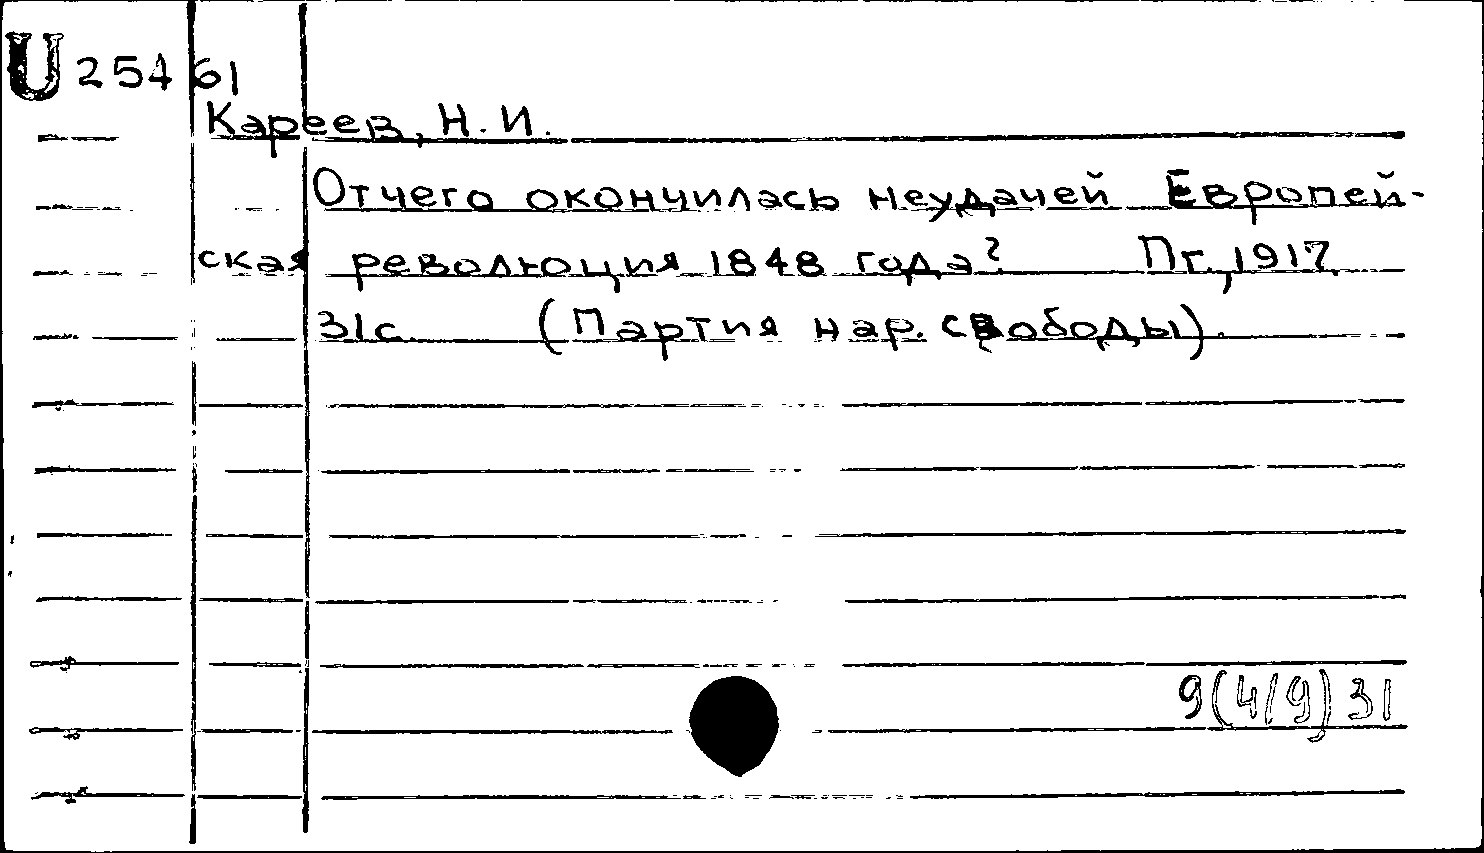 U 254 61
Кареев, Н. И.
Отчего окончилась неудачей Европей-
ская революция 1848 года? Пг., 1917.
31с. (Партия нар. свободы).
9(4/9)31